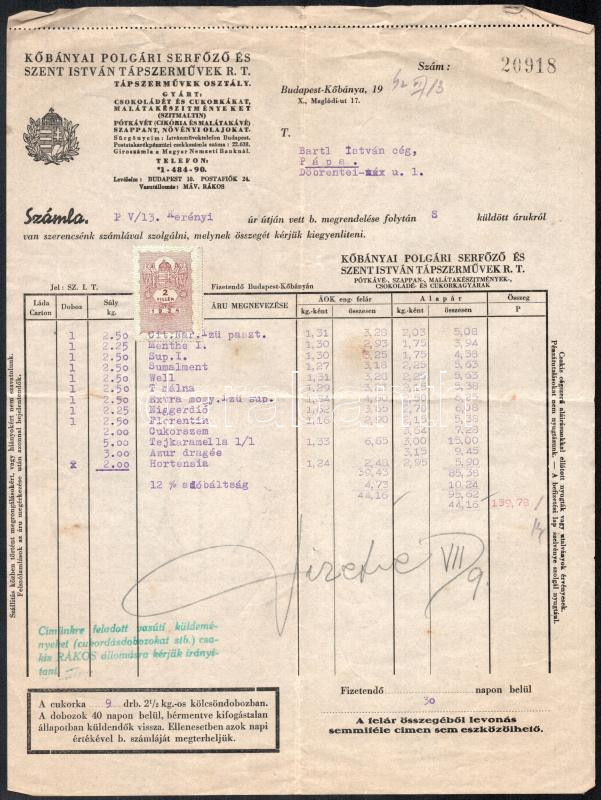 KŐBÁNYAI POLGÁRI SERFŐZŐ ÉS
SZENT ISTVÁN TÁPSZERMŰVEK R. T.
TÁPSZERMŰVEK OSZTÁLY.
GYÁRT:
CSOKOLÁDÉT ÉS CUKORKÁKAT,
MALÁTAKÉSZITMÉNYEKET
(SZITMALTIN)
PÓTKÁVÉT (CIKÓRIA ÉS MALÁTAKÁVÉ)
SZAPPANT, NÖVÉNYI OLAJOKAT.
Sürgönycim: Istvánművekmlefon Budapest.
Postatakarékpénztári csekkszámla száma: 22.638.
Giroszámla a Magyar Nemzeti Banknál.
TELEFON:
*1-484-90.
Levélcim: BUDAPEST 10. POSTAFIÓK 24.
Vasutállomás: MÁV. RÁKOS
Szám: 20918
Budapest-Kőbánya, 19
X., Maglódi-ut 17.
T.
Bartl István cég,
Pápa.
Döbrentei- u. 1.
Számla. P V/13. Kerényi úr útján vett b. megrendelése folytán S küldött árukról
van szerencsénk számlával szolgálni, melynek összegét kérjük kiegyenliteni.
KŐBÁNYAI POLGÁRI SERFŐZŐ ÉS
SZENT ISTVÁN TÁPSZERMŰVEK R. T.
PÓTKÁVÉ-, SZAPPAN-, MALÁTAKÉSZITMÉNYEK-,
CSOKOLÁDÉ- ÉS CUKORKAGYÁRAK
2
FILLÉR
Jel: SZ. I. T. Fizetendő Budapest-Kőbányán
Láda Carton Doboz Súly kg. ÁRU MEGNEVEZÉSE ÁOK eng. felár Alapár Összeg
kg.-ként összesen kg.-ként összesen P
1 2.50 Cit.Nar.Izü paszt. 1,31 3,28 2,03 5,08
1 2.25 Menthe I. 1,30 2,93 1,75 3,94
1 2.50 Sup.I. 1,30 3,25 1,75 4,38
1 2.50 Sumalment 1,27 3,18 2,25 5,63
1 2.50 Well 1,31 3,28 2,25 5,63
1 2.50 T málna 1,29
1 2.50 Extra mogy.izü sup.
1 2.25 Niggerdió
1 2.50 Florentin 1,16 2,90 2,15 5,38
2.00 Cukorszem
5.00 Tejkaramella 1/1 1,33 6,65 3,00 15,00
3.00 Azur dragée 3,15 9,45
x 2.00 Hortensia 1,24 2,48 2,95 5,90
39,43 85,38
12 % adóbáltság 4,73 10,24
44,16 95,62
44,16 139,78
Fizetve VII/9.
Szállitás közben történt megrongálásokért, vagy hiányokért nem szavatolunk.
Felszólamlások az áru megérkezése után azonnal bejelentendők.
Csakis cégszerű aláirásunkkal ellátott nyugták vagy utalványok érvényesek.
Pénzátutalásokat nem nyugtázunk. — A befizetési lap szelvénye szolgál nyugtául.
Cimünkre feladott vasúti küldemé-
nyeket (cukordásdobozokat stb.) csa-
kis RÁKOS állomásra kérjük irányi-
tani
A cukorka 9 drb. 2½ kg.-os kölcsöndobozban.
A dobozok 40 napon belül, bérmentve kifogástalan
állapotban küldendők vissza. Ellenesetben azok napi
értékével b. számláját megterheljük.
Fizetendő 30 napon belül
A felár összegéből levonás
semmiféle cimen sem eszközölhető.